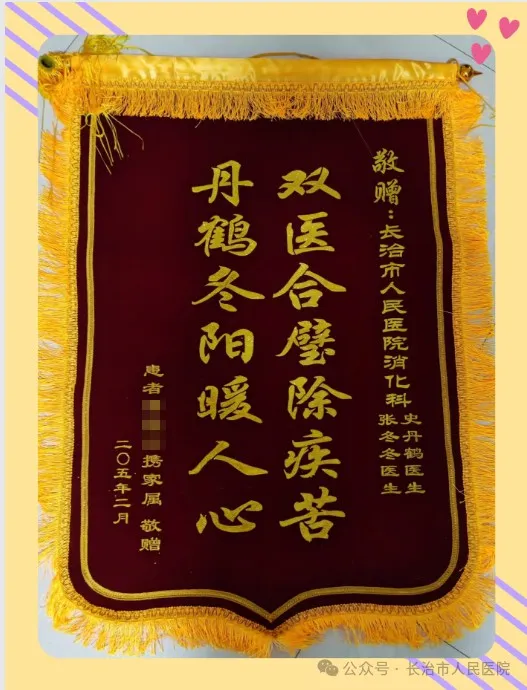 敬赠：长治市人民医院消化科
史丹鹤医生
张冬冬医生
双医合璧除疾苦
丹鹤冬阳暖人心
患者 携家属 敬赠
二〇五年二月
公众号 · 长治市人民医院